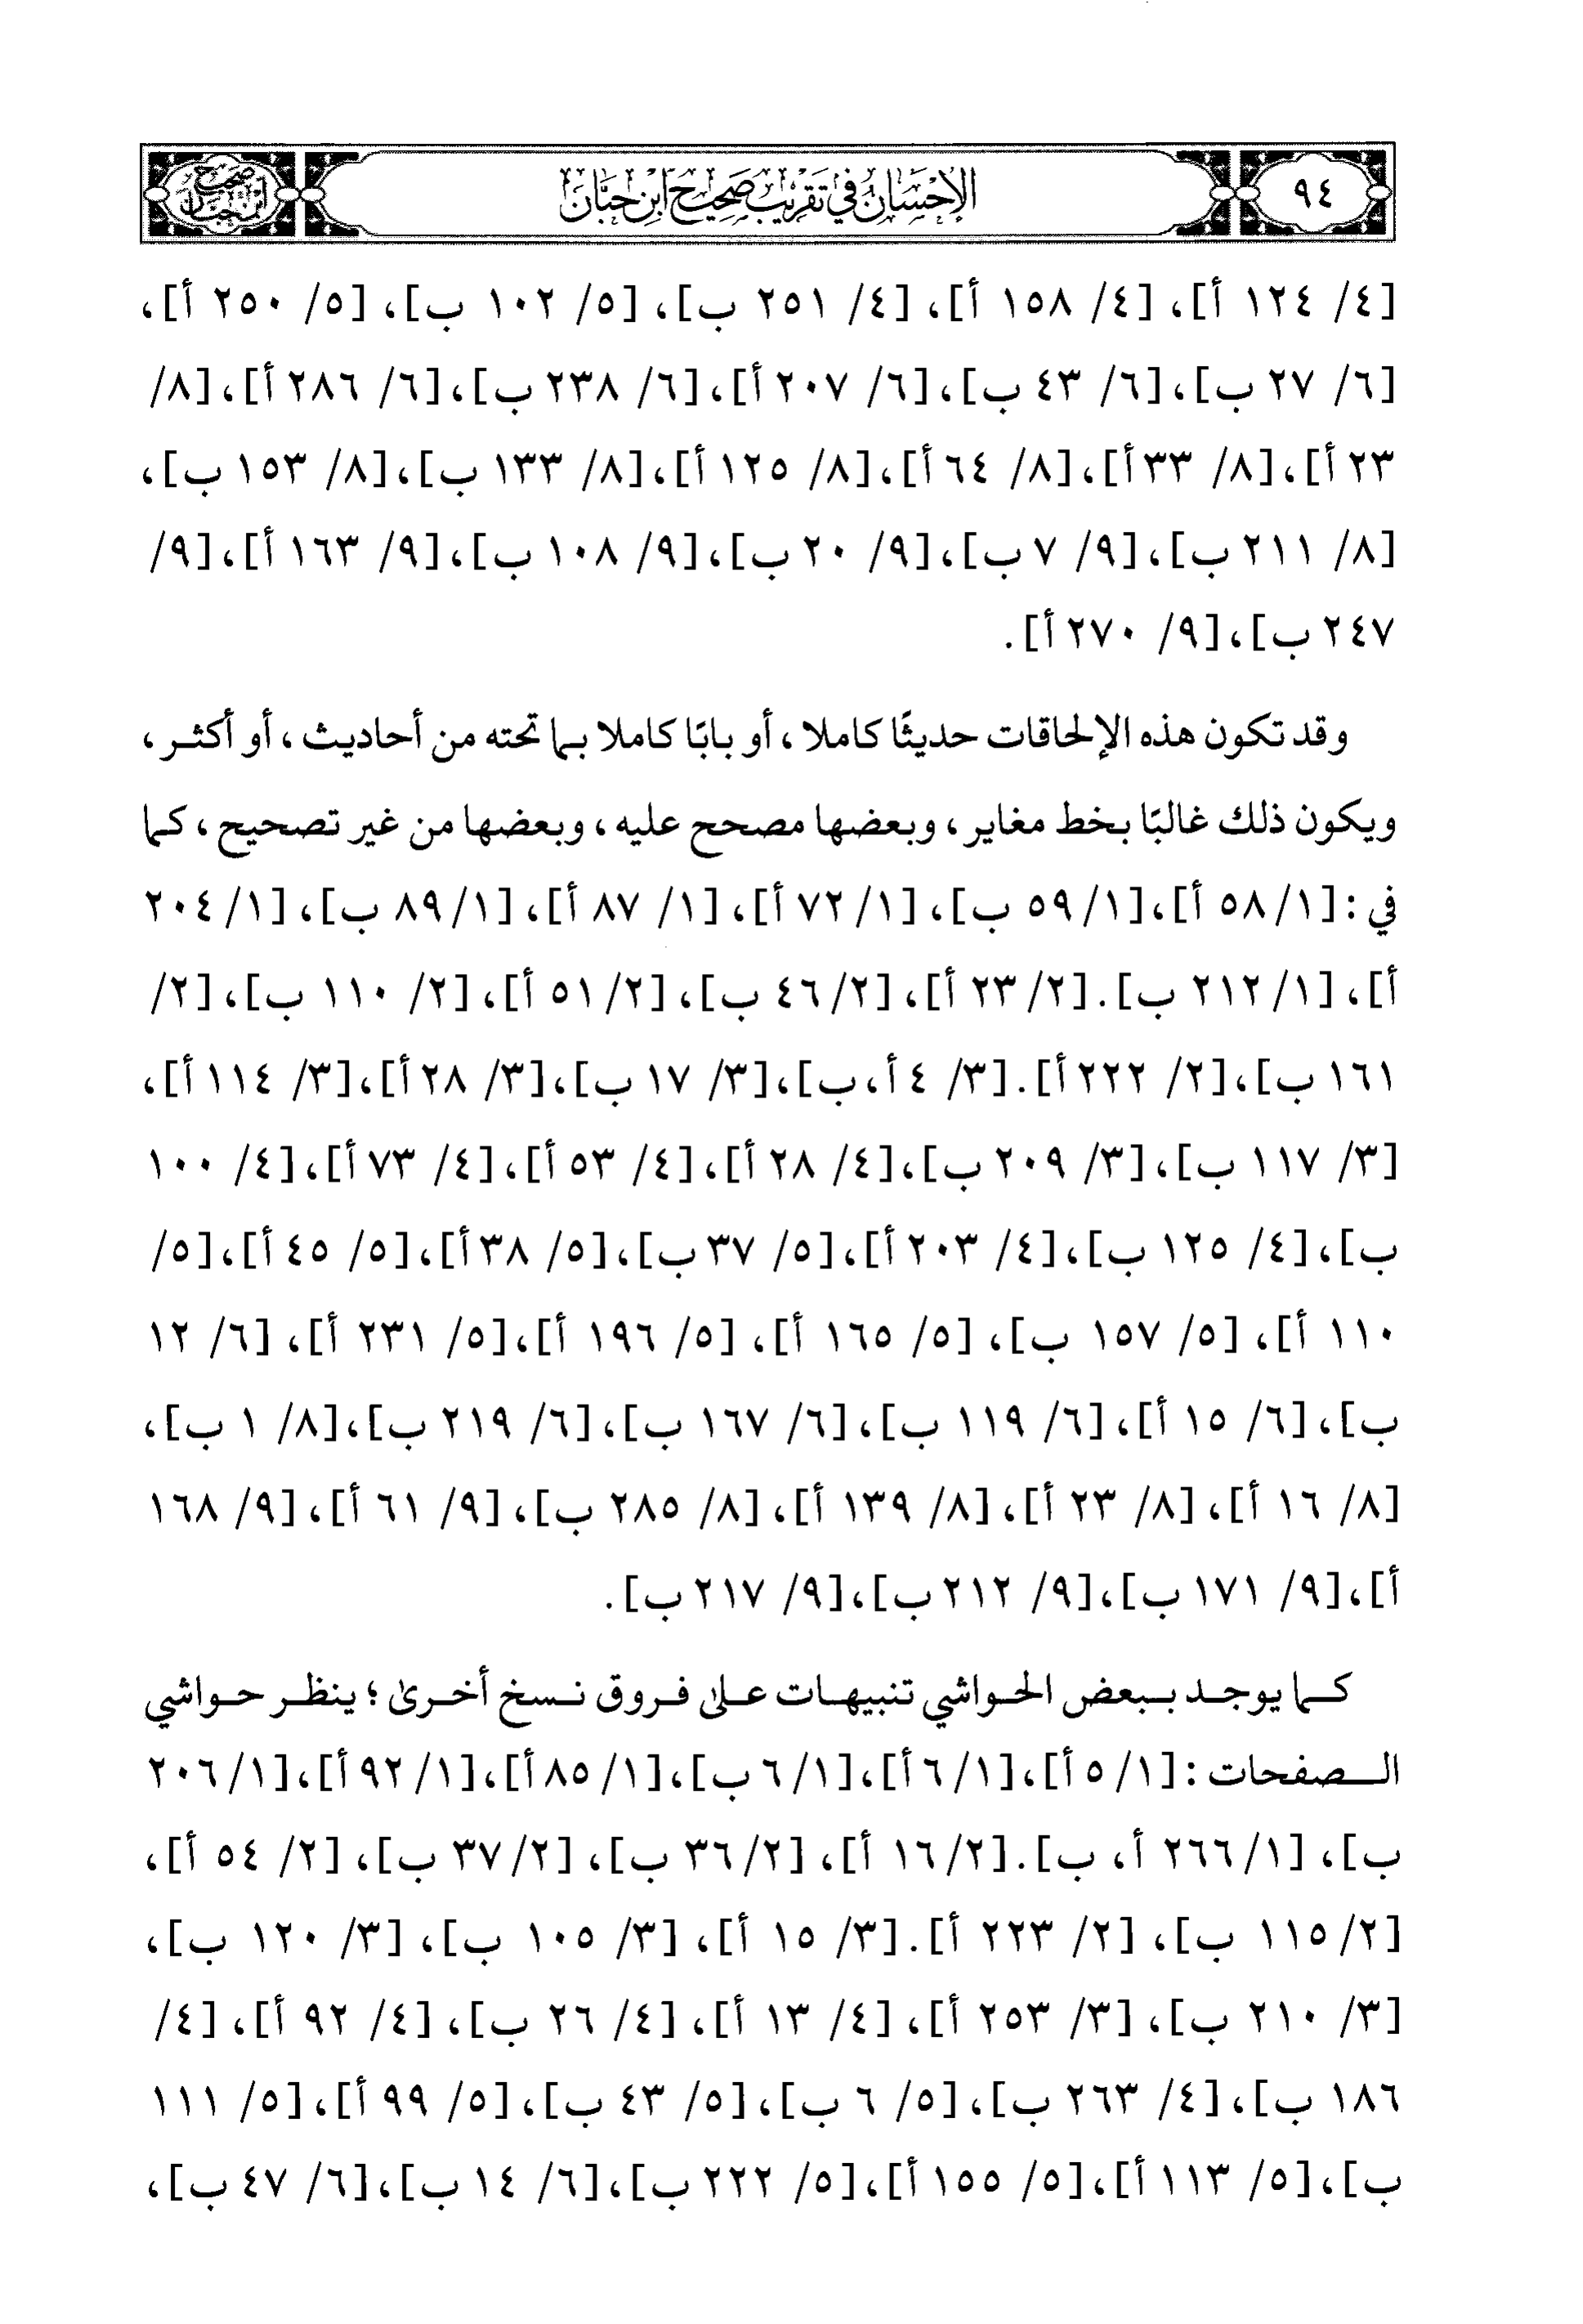 ٩٤
الإحسان في تقريب صحيح ابن حبان
صحيح ابن حبان
[٤/ ١٢٤ أ]، [٤/ ١٥٨ أ]، [٤/ ٢٥١ ب]، [٥/ ١٠٢ ب]، [٥/ ٢٥٠ أ]،
[٦/ ٢٧ ب]، [٦/ ٤٣ ب]، [٦/ ٢٠٧ أ]، [٦/ ٢٣٨ ب]، [٦/ ٢٨٦ أ]، [٨/
٢٣ أ]، [٨/ ٣٣ أ]، [٨/ ٦٤ أ]، [٨/ ١٢٥ أ]، [٨/ ١٣٣ ب]، [٨/ ١٥٣ ب]،
[٨/ ٢١١ ب]، [٩/ ٧ ب]، [٩/ ٢٠ ب]، [٩/ ١٠٨ ب]، [٩/ ١٦٣ أ]، [٩/
٢٤٧ ب]، [٩/ ٢٧٠ أ].
وقد تكون هذه الإلحاقات حديثًا كاملا، أو بابًا كاملا بما تحته من أحاديث، أو أكثر،
ويكون ذلك غالبًا بخط مغاير، وبعضها مصحح عليه، وبعضها من غير تصحيح، كما
في: [١/ ٥٨ أ]، [١/ ٥٩ ب]، [١/ ٧٢ أ]، [١/ ٨٧ أ]، [١/ ٨٩ ب]، [١/ ٢٠٤
أ]، [١/ ٢١٢ ب]. [٢/ ٢٣ أ]، [٢/ ٤٦ ب]، [٢/ ٥١ أ]، [٢/ ١١٠ ب]، [٢/
١٦١ ب]، [٢/ ٢٢٢ أ]. [٣/ ٤ أ، ب]، [٣/ ١٧ ب]، [٣/ ٢٨ أ]، [٣/ ١١٤ أ]،
[٣/ ١١٧ ب]، [٣/ ٢٠٩ ب]، [٤/ ٢٨ أ]، [٤/ ٥٣ أ]، [٤/ ٧٣ أ]، [٤/ ١٠٠
ب]، [٤/ ١٢٥ ب]، [٤/ ٢٠٣ أ]، [٥/ ٣٧ ب]، [٥/ ٣٨ أ]، [٥/ ٤٥ أ]، [٥/
١١٠ أ]، [٥/ ١٥٧ ب]، [٥/ ١٦٥ أ]، [٥/ ١٩٦ أ]، [٥/ ٢٣١ أ]، [٦/ ١٢
ب]، [٦/ ١٥ أ]، [٦/ ١١٩ ب]، [٦/ ١٦٧ ب]، [٦/ ٢١٩ ب]، [٨/ ١ ب]،
[٨/ ١٦ أ]، [٨/ ٢٣ أ]، [٨/ ١٣٩ أ]، [٨/ ٢٨٥ ب]، [٩/ ٦١ أ]، [٩/ ١٦٨
أ]، [٩/ ١٧١ ب]، [٩/ ٢١٢ ب]، [٩/ ٢١٧ ب].
كما يوجد ببعض الحواشي تنبيهات على فروق نسخ أخرى؛ ينظر حواشي
الصفحات: [١/ ٥ أ]، [١/ ٦ أ]، [١/ ٦ ب]، [١/ ٨٥ أ]، [١/ ٩٢ أ]، [١/ ٢٠٦
ب]، [١/ ٢٦٦ أ، ب]. [٢/ ١٦ أ]، [٢/ ٣٦ ب]، [٢/ ٣٧ ب]، [٢/ ٥٤ أ]،
[٢/ ١١٥ ب]، [٢/ ٢٢٣ أ]. [٣/ ١٥ أ]، [٣/ ١٠٥ ب]، [٣/ ١٢٠ ب]،
[٣/ ٢١٠ ب]، [٣/ ٢٥٣ أ]، [٤/ ١٣ أ]، [٤/ ٢٦ ب]، [٤/ ٩٢ أ]، [٤/
١٨٦ ب]، [٤/ ٢٦٣ ب]، [٥/ ٦ ب]، [٥/ ٤٣ ب]، [٥/ ٩٩ أ]، [٥/ ١١١
ب]، [٥/ ١١٣ أ]، [٥/ ١٥٥ أ]، [٥/ ٢٢٢ ب]، [٦/ ١٤ ب]، [٦/ ٤٧ ب]،